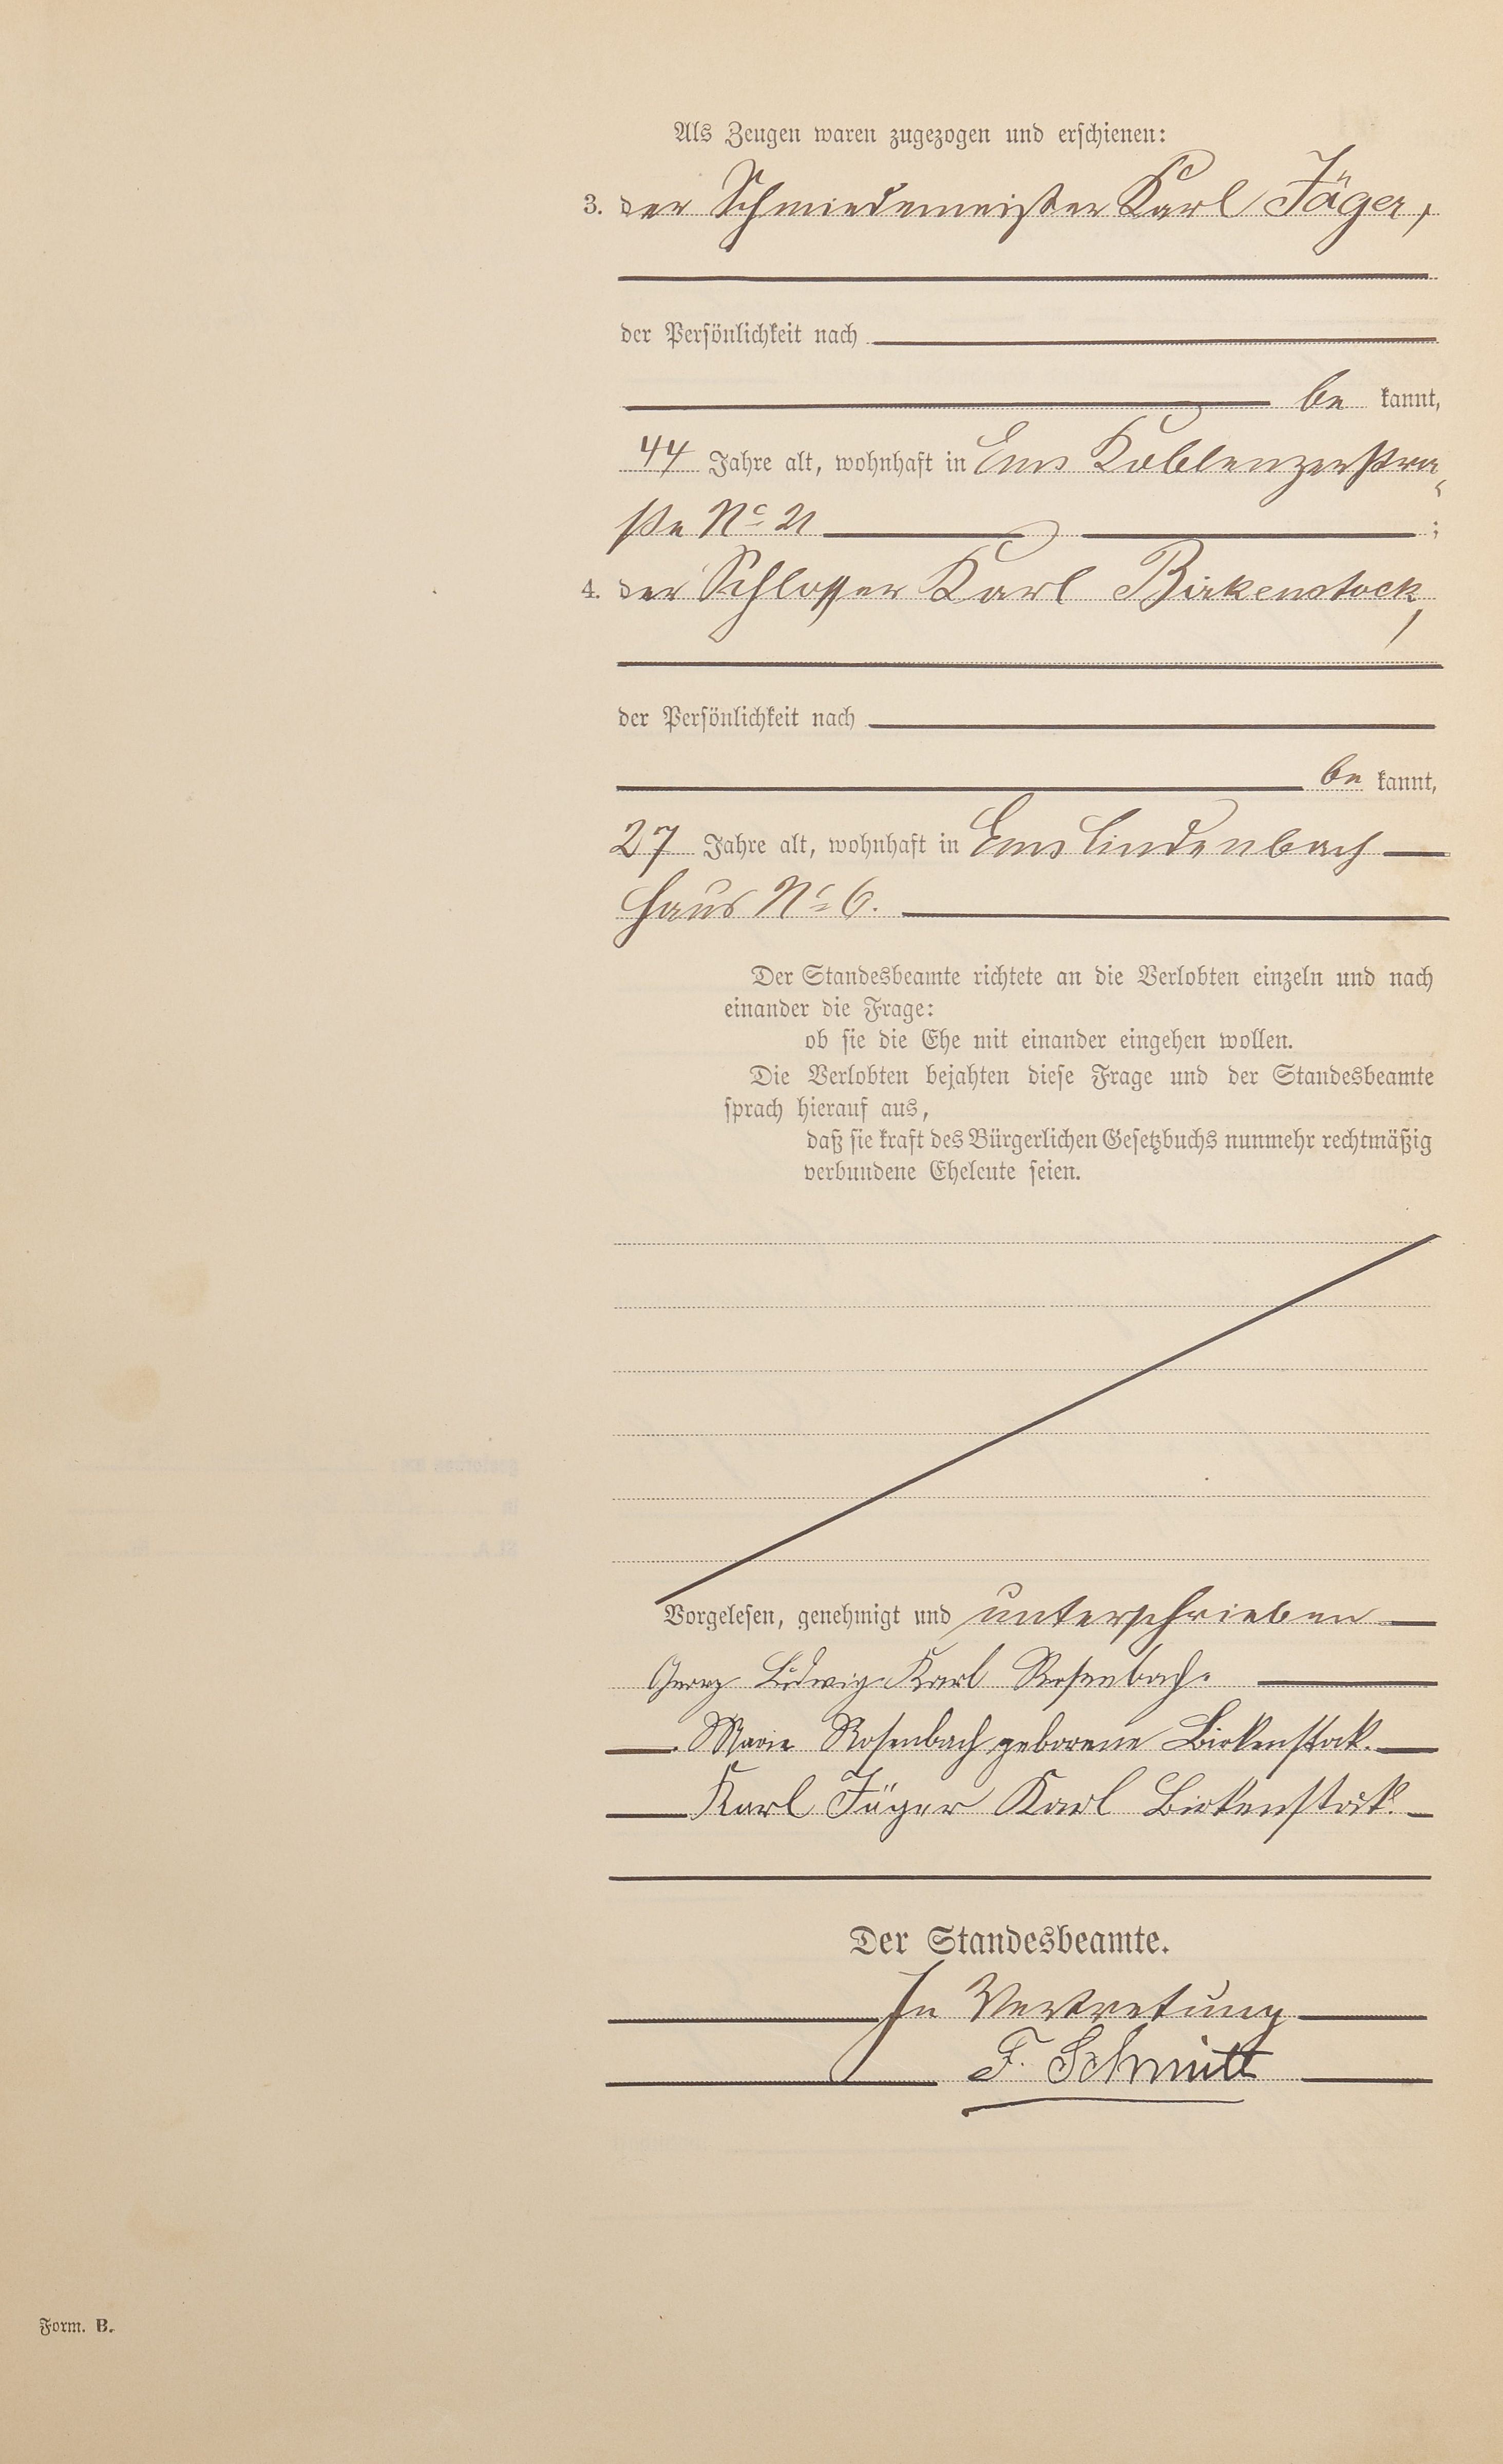 Als Zeugen waren zugezogen und erschienen:
3. der Schmiedemeister Karl Jäger,
der Persönlichkeit nach
be kannt,
44 Jahre alt, wohnhaft in Ems Koblenzerstra-
ße No 21 ;
4. der Schlosser Karl Birkenstock,
der Persönlichkeit nach
be kannt,
27 Jahre alt, wohnhaft in Ems Lindenbach
Haus No 6.
Der Standesbeamte richtete an die Verlobten einzeln und nach
einander die Frage:
ob sie die Ehe mit einander eingehen wollen.
Die Verlobten bejahten diese Frage und der Standesbeamte
sprach hierauf aus,
daß sie kraft des Bürgerlichen Gesetzbuchs nunmehr rechtmäßig
verbundene Eheleute seien.
Vorgelesen, genehmigt und unterschrieben
Georg Ludwig Karl Rosenbach.
Marie Rosenbach geborene Birkenstock.
Karl Jäger Karl Birkenstock.
Der Standesbeamte.
In Vertretung
F. Schmitt
Form. B.